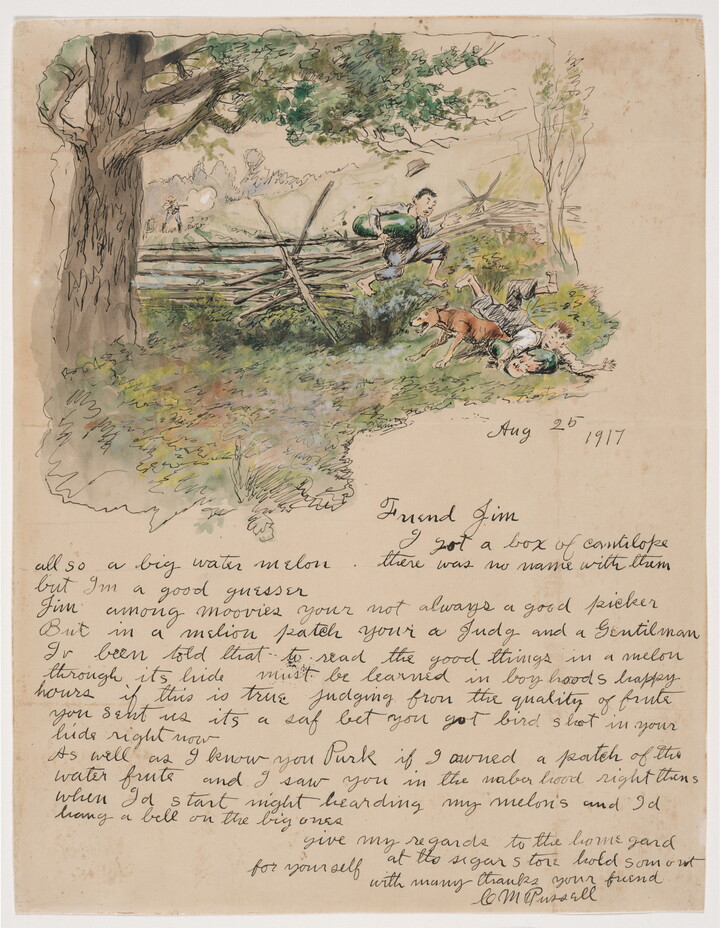 Aug 25 1917
Friend Jim
I got a box of cantilope
all so a big water melon. there was no name with them
but Im a good guesser
Jim among moovies your not always a good picker
But in a melion patch your a Judg and a Gentilman
Iv been told that to read the good things in a melon
through its hide must be learned in boy hoods happy
hours if this is true Judging fron the quality of frute
you sent us its a saf bet you got bird shot in your
hide right now
As well as I know you Purk if I owned a patch of this
water frute and I saw you in the naber hood right thens
when Id start night hearding my melons and Id
hang a bell on the big ones
give my regards to the home gard
at the sigar store hold som out
for yourself
with many thanks your friend
C M Russell